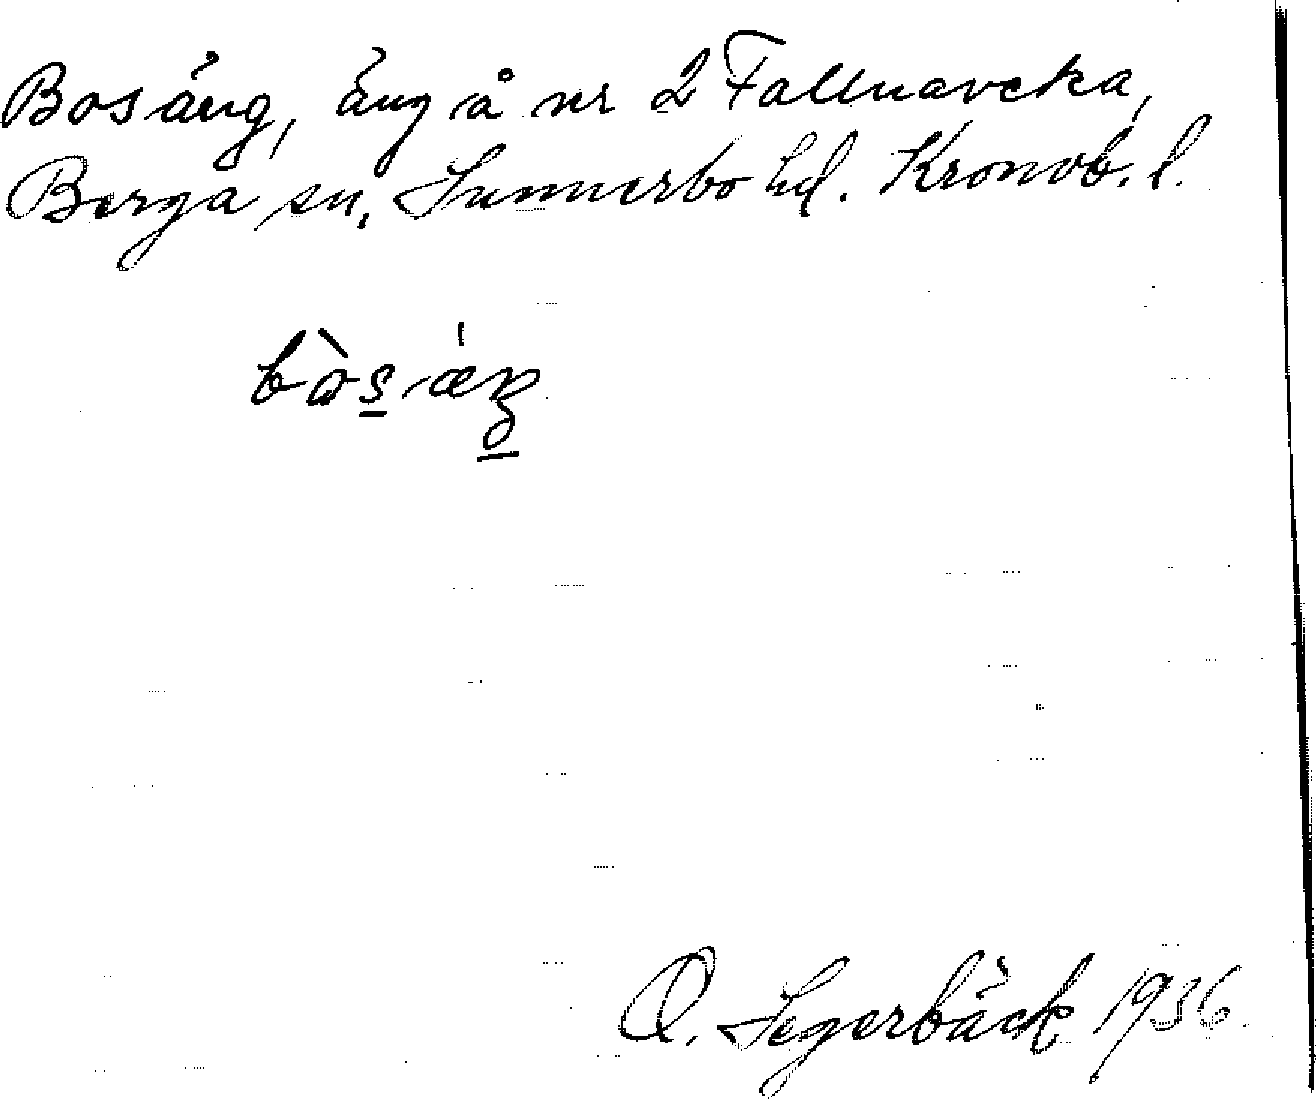 Bosäng, äng å nr 2 Fallnaveka,
Berga sn, Sunnerbo hd. Kronob. l.
bòs ˈæŋ
O. Segerbäck 1936.